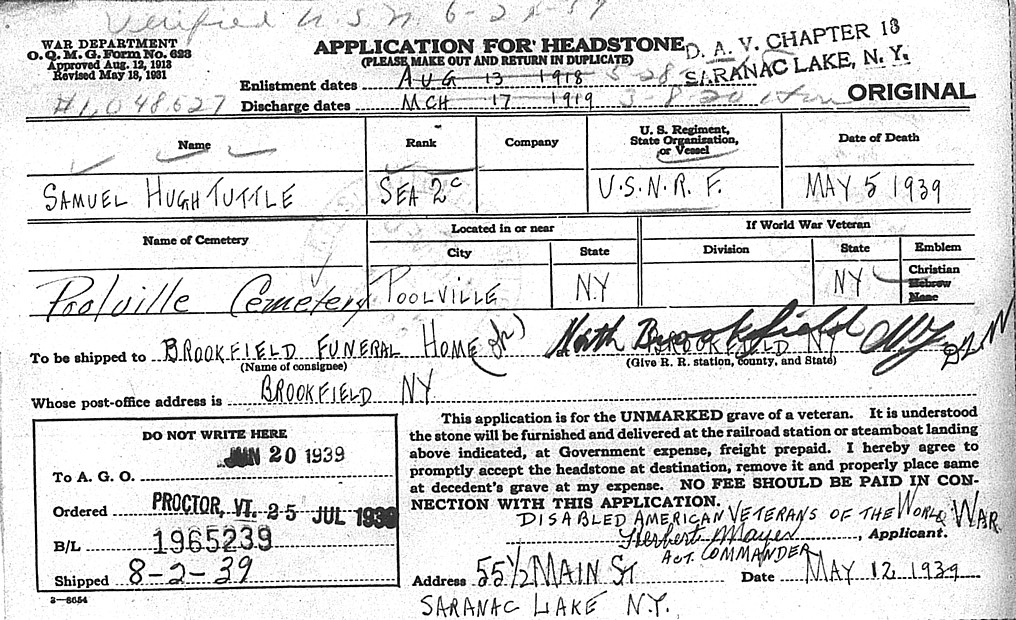 Verified U.S.N. 6-2
WAR DEPARTMENT
O. Q. M. G. Form No. 623
Approved Aug. 12, 1918
Revised May 18, 1931
#1,048,627
APPLICATION FOR HEADSTONE
(PLEASE MAKE OUT AND RETURN IN DUPLICATE)
D. A. V. CHAPTER 18
SARANAC LAKE, N. Y.
Enlistment dates AUG 13 1918 5-28
Discharge dates MCH 17 1919 3-8-20
ORIGINAL
Name
Rank
Company
U. S. Regiment,
State Organization,
or Vessel
Date of Death
SAMUEL HUGH TUTTLE
SEA 2c
U.S.N.R.F.
MAY 5 1939
Name of Cemetery
Located in or near
City
State
If World War Veteran
Division
State
Emblem
Poolville Cemetery
POOLVILLE
N.Y
NY
Christian
Hebrew
None
To be shipped to BROOKFIELD FUNERAL HOME at North Brookfield BROOKFIELD NY
(Name of consignee)
(Give R. R. station, county, and State)
Whose post-office address is BROOKFIELD NY.
DO NOT WRITE HERE
JUN 20 1939
To A. G. O.
Ordered PROCTOR, VT. 25 JUL 1939
B/L 1965239
Shipped 8-2-39
3-8654
This application is for the UNMARKED grave of a veteran. It is understood
the stone will be furnished and delivered at the railroad station or steamboat landing
above indicated, at Government expense, freight prepaid. I hereby agree to
promptly accept the headstone at destination, remove it and properly place same
at decedent's grave at my expense. NO FEE SHOULD BE PAID IN CON-
NECTION WITH THIS APPLICATION.
DISABLED AMERICAN VETERANS OF THE WORLD WAR
Herbert Mayer, Applicant.
ACT. COMMANDER
Address 55½ MAIN ST Date MAY 12, 1939
SARANAC LAKE N.Y.